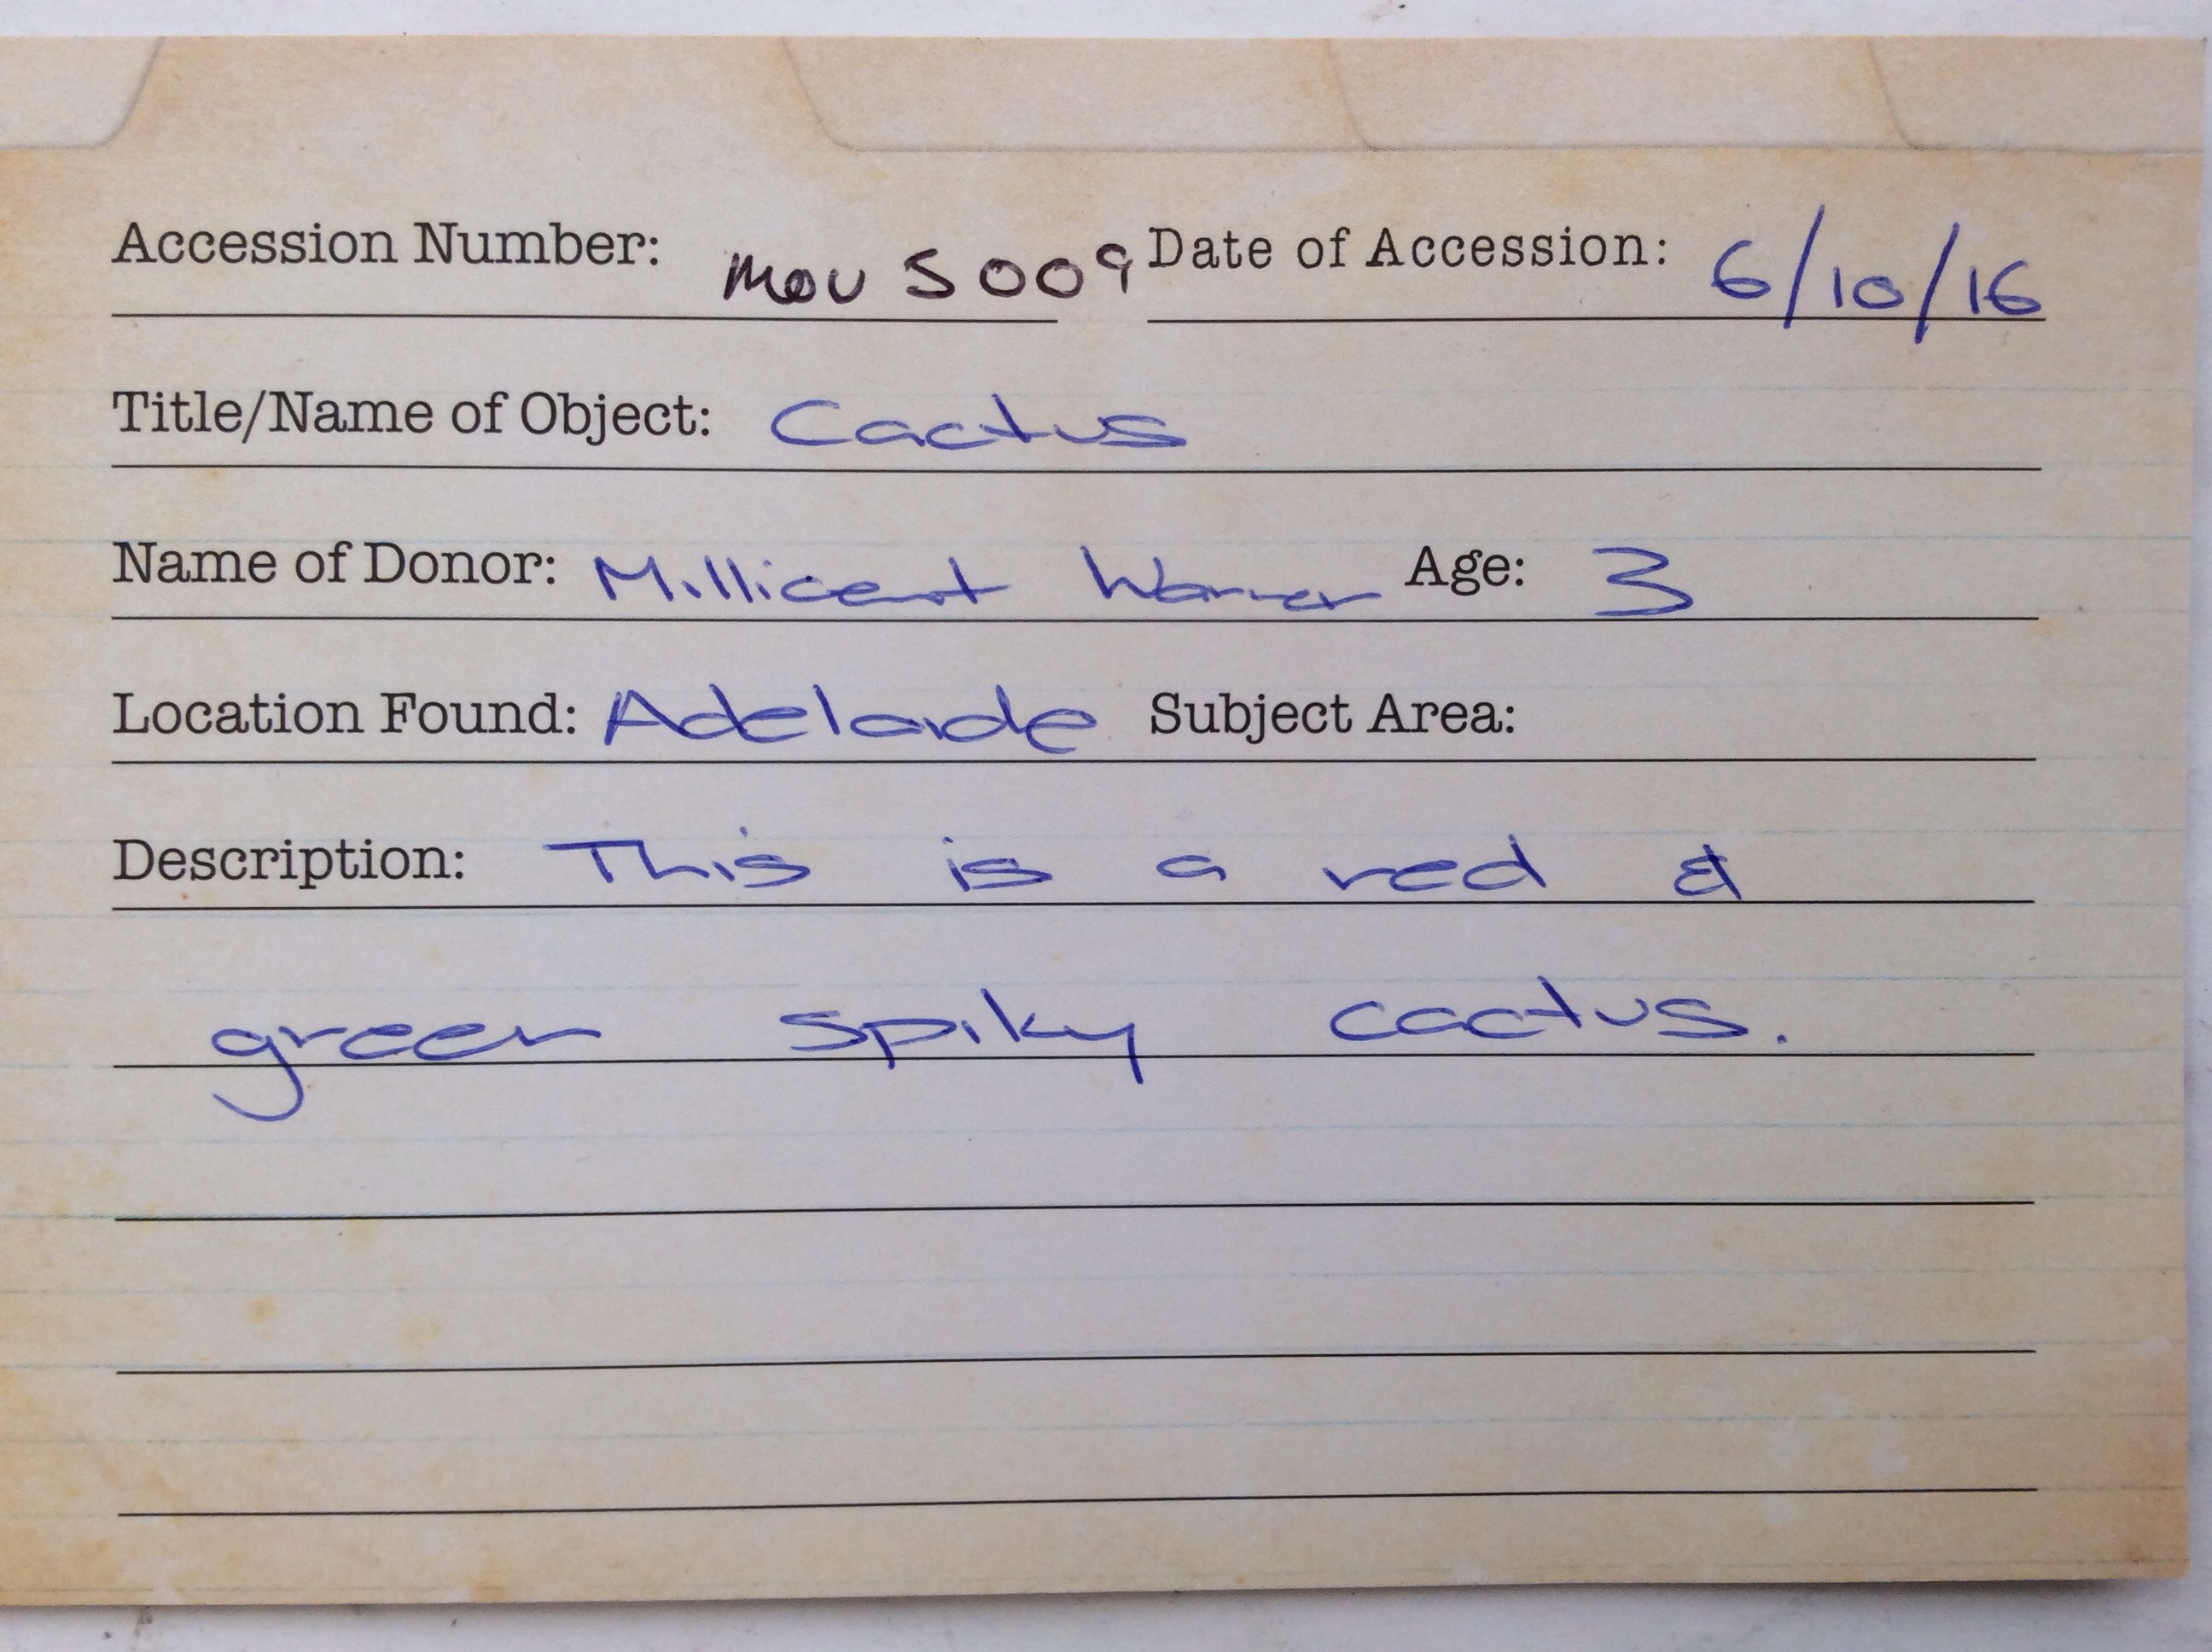 Accession Number: MOU S009 Date of Accession: 6/10/16
Title/Name of Object: Cactus
Name of Donor: Millicent Warner Age: 3
Location Found: Adelaide Subject Area:
Description: This is a red &
green spiky cactus.